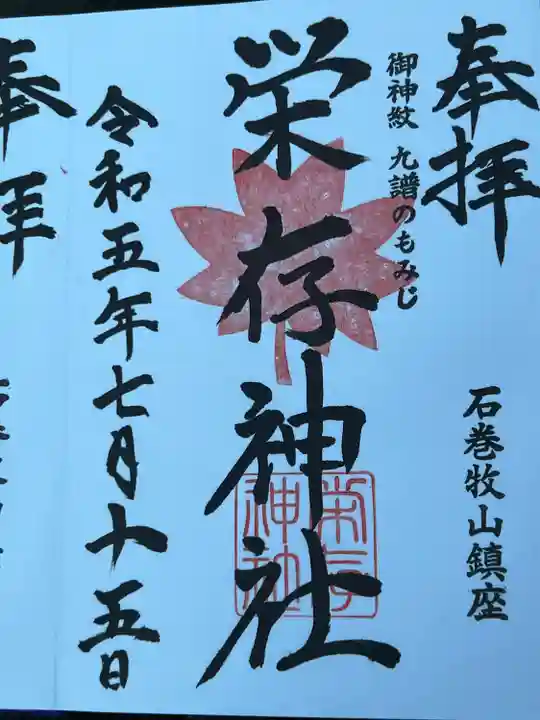 奉拝
石巻牧山鎮座
御神紋 九譜のもみじ
栄存神社
栄存神社
令和五年七月十五日
奉拝